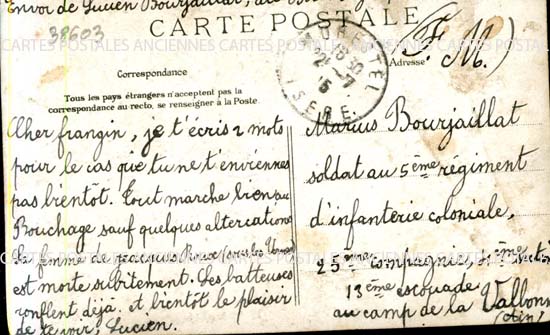 Envoi de Lucien Bourjaillat,
CARTE POSTALE
38603
(F. M.)
MORESTEL
18 30
2 -7
15
ISERE.
CARTES POSTALES ANCIENNES CARTES POSTALES ANCIENNES
Correspondance
Adresse
Tous les pays étrangers n'acceptent pas la
correspondance au recto, se renseigner à la Poste.
Cher frangin, je t'écris 2 mots
pour le cas que tu ne t'enviennes
pas bientôt. Tout marche bien au
Bouchage sauf quelques altercations
La femme de jacques
est morte subitement. Les batteuses
ronflent déjà, et bientôt le plaisir
de te voir. Lucien.
Marius Bourjaillat
soldat au 5ème régiment
d'infanterie coloniale,
25ème compagnie, 4ème
13ème escouade
au camp de la Valbonne
(Ain)